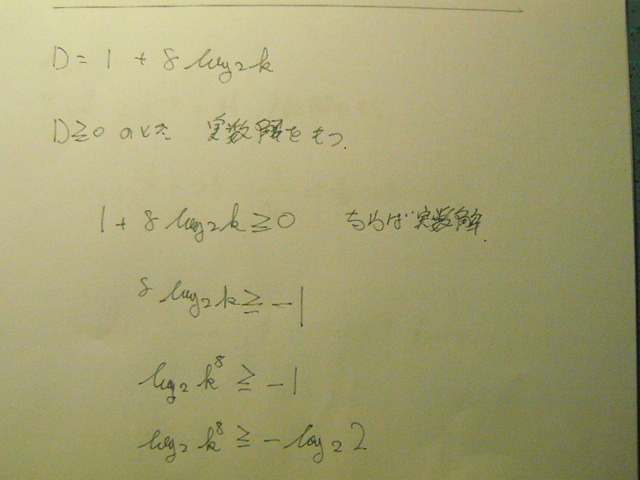 D = 1 + 8 log₂k
D≧0 のとき 実数解をもつ.
1 + 8 log₂k ≧ 0 ならば実数解.
8 log₂k ≧ -1
log₂ k⁸ ≧ -1
log₂ k⁸ ≧ -log₂ 2